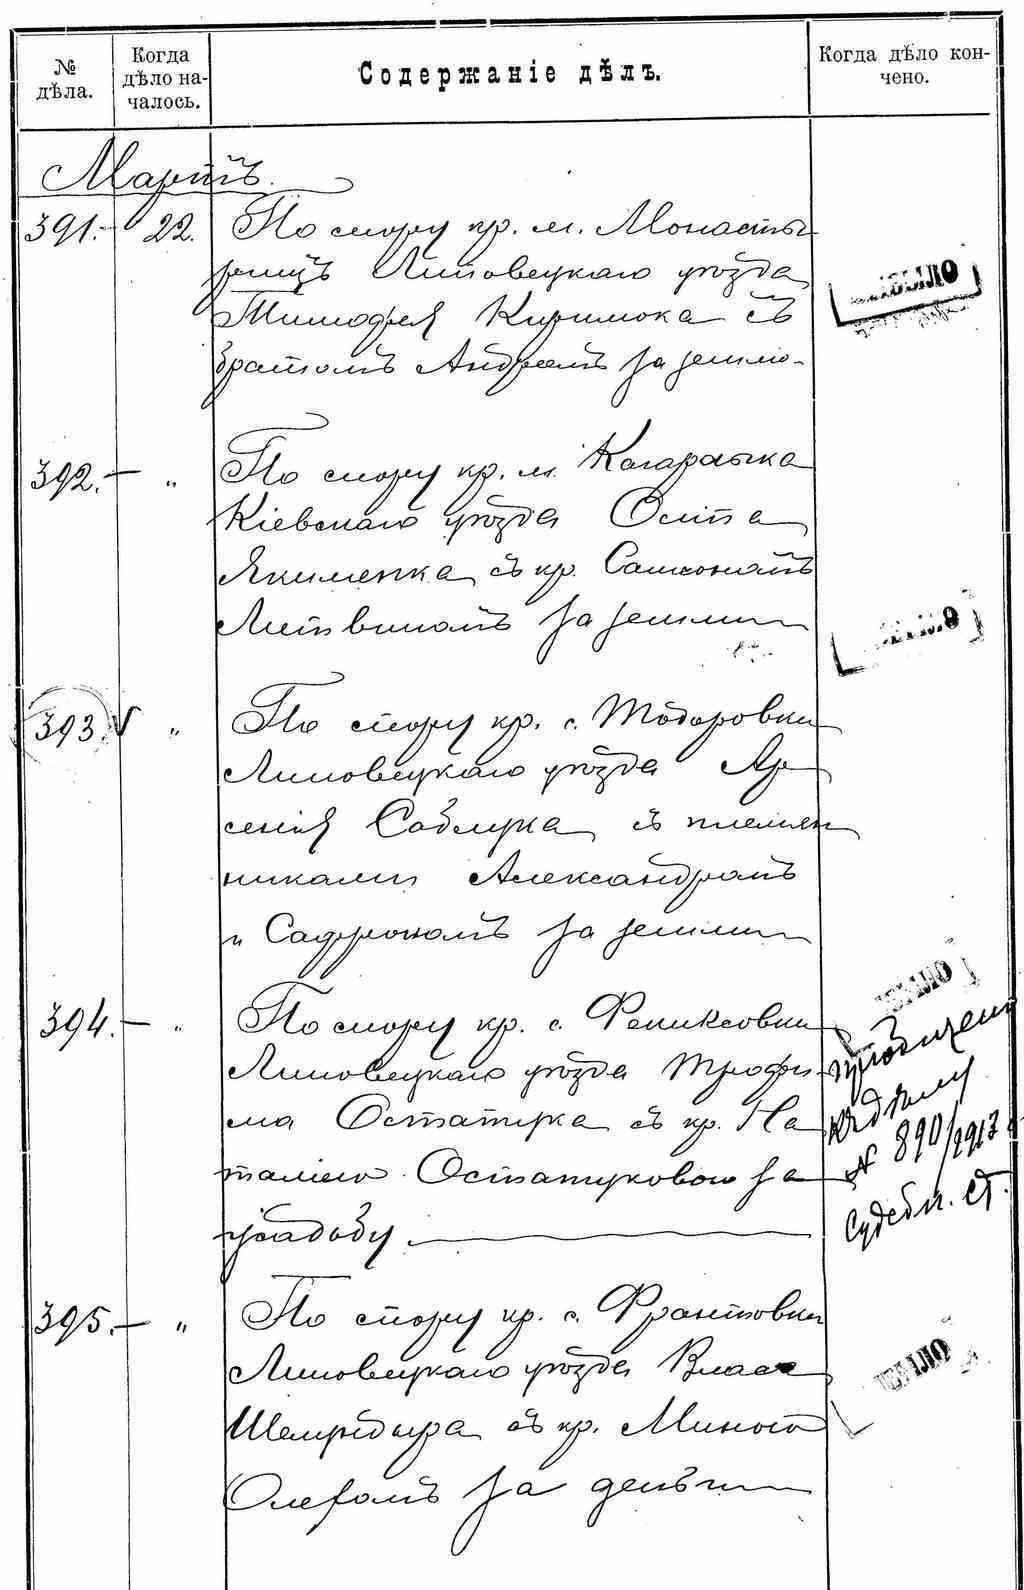 № дѣла.
Когда дѣло на-
чалось.
Содержаніе дѣлъ.
Когда дѣло кон-
чено.
Мартъ.
391.- 22. По спору кр. м. Монасты-
рищъ Липовецкаго уѣзда
Тимофея Киримока съ
братомъ Андреемъ за землю.
392.- " По спору кр. м. Кагарлыка
Кіевскаго уѣзда Осипа
Якименка съ кр. Самсономъ
Литвиномъ за земли
393. V " По спору кр. с. Тодоровки
Липовецкаго уѣзда Ар-
сенія Саблука съ племян
никами Александромъ
и Сафрономъ за земли
394.- " По спору кр. с. Фениксовки
Липовецкаго уѣзда Трофи
ма Остапука съ кр. На
таліею Остапуковою за
усадьбу
пріобщено
къ дѣлу
№ 890/1913
Судебн. ст.
395.- " По спору кр. с. Франтовки
Липовецкаго уѣзда Власа
съ кр. Миною
за деньги